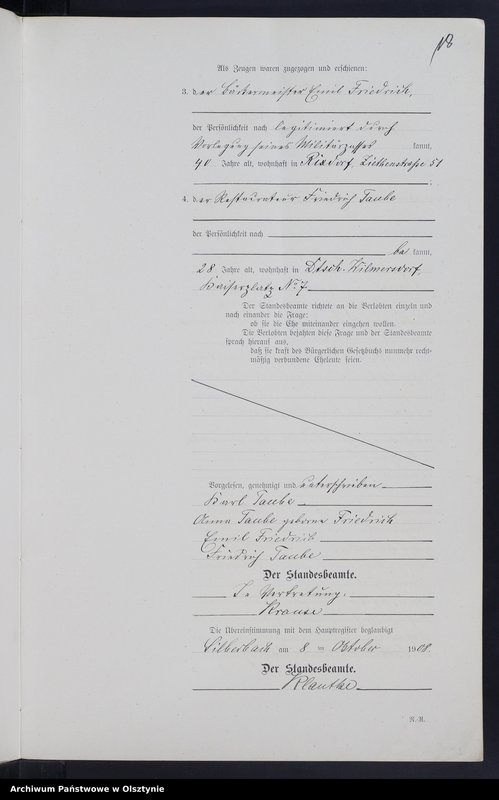 18
Als Zeugen waren zugezogen und erschienen:
3. der Bäckermeister Emil Friedrich,
der Persönlichkeit nach legitimiert durch
Vorlegung seines Militärpasses kannt,
40 Jahre alt, wohnhaft in Rixdorf, Ziethenstraße 51
;
4. der Restaurateur Friedrich Taube
der Persönlichkeit nach
be kannt,
28 Jahre alt, wohnhaft in Dtsch. Wilmersdorf,
Kaiserplatz No 7.
Der Standesbeamte richtete an die Verlobten einzeln und
nach einander die Frage:
ob sie die Ehe miteinander eingehen wollen.
Die Verlobten bejahten diese Frage und der Standesbeamte
sprach hierauf aus,
daß sie kraft des Bürgerlichen Gesetzbuchs nunmehr recht-
mäßig verbundene Eheleute seien.
Vorgelesen, genehmigt und unterschrieben
Karl Taube
Anna Taube geborene Friedrich
Emil Friedrich
Friedrich Taube
Der Standesbeamte.
In Vertretung:
Krause
Die Übereinstimmung mit dem Hauptregister beglaubigt
Silberbach am 8 ten Oktober 1908.
Der Standesbeamte.
Klautke
N.-R.
Archiwum Państwowe w Olsztynie